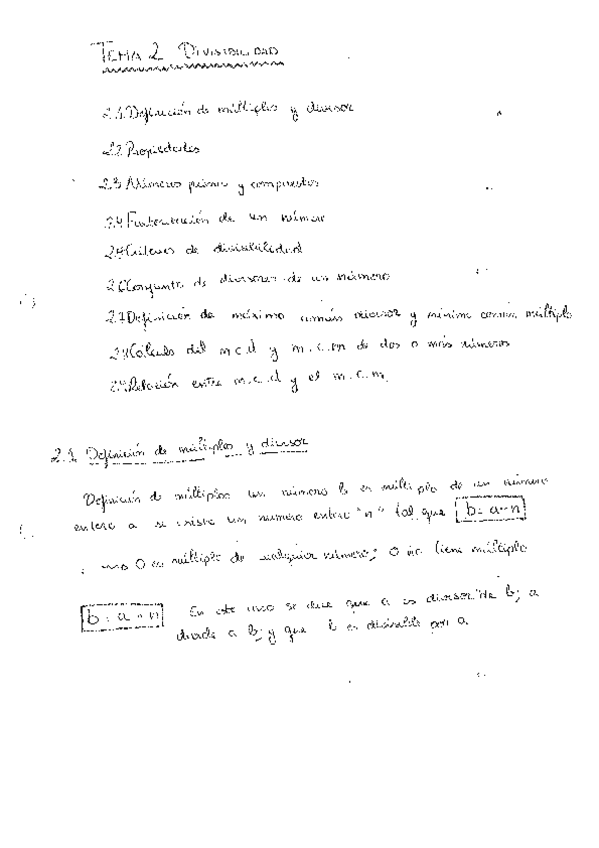 TEMA 2 DIVISIBILIDAD
2.1 Definición de múltiplos y divisor
2.2 Propiedades
2.3 Números primos y compuestos
2.4 Factorización de un número
2.5 Criterios de divisibilidad
2.6 Conjunto de divisores de un número
2.7 Definición de máximo común divisor y mínimo común múltiplo
2.8 Cálculo del m.c.d y m.c.m de dos o más números
2.9 Relación entre m.c.d y el m.c.m.
2.1 Definición de múltiplos y divisor
Definición de múltiplos un número b es múltiplo de un número
entero a si existe un numero entero "n" tal que b = a · n
0 es múltiplo de cualquier número; 0 no tiene múltiplo
b = a · n En este caso se dice que a es divisor de b; a
divide a b; y que b es divisible por a